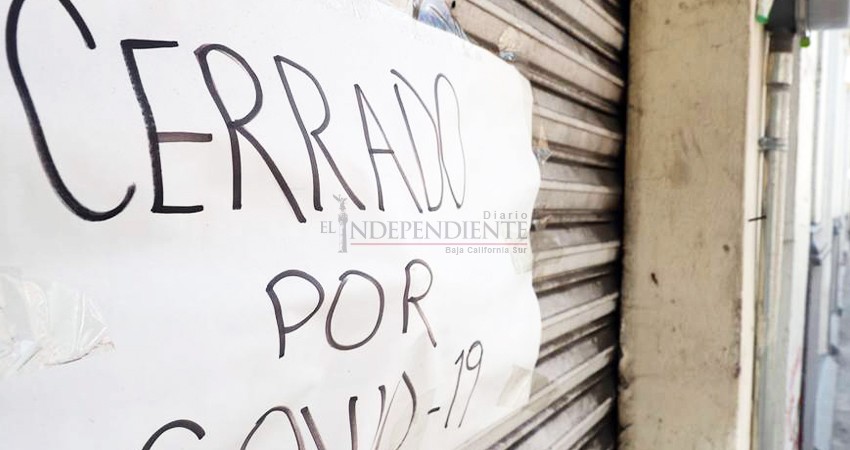 CERRADO
POR
COVID-19
Diario
EL INDEPENDIENTE
Baja California Sur